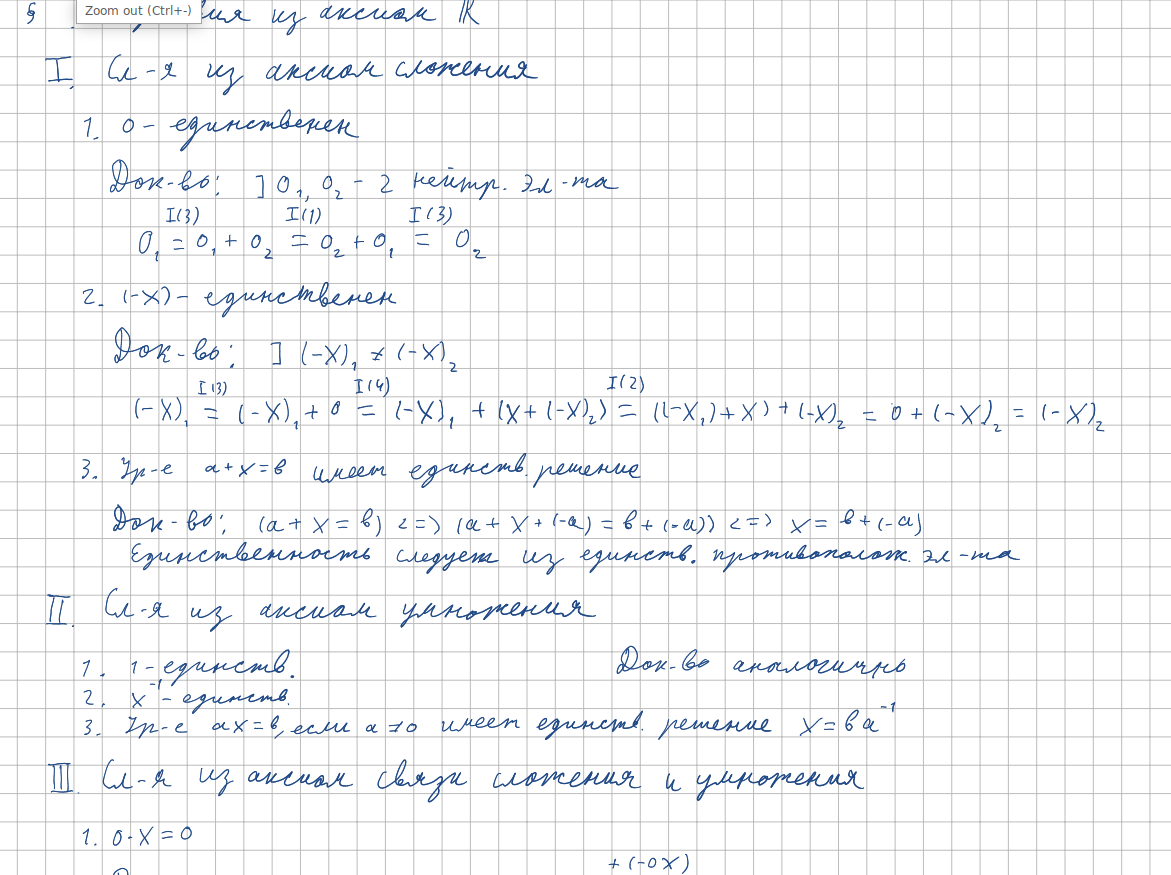 Zoom out (Ctrl+-)
§ из аксиом ℝ
I. Сл-я из аксиом сложения
1. 0 - единственен
Док-во: ] 0₁, 0₂ - 2 нейтр. эл-та
I(3) I(1) I(3)
0₁ = 0₁ + 0₂ = 0₂ + 0₁ = 0₂
2. (-x) - единственен
Док-во: ] (-x)₁ ≠ (-x)₂
I(3) I(4) I(2)
(-x)₁ = (-x)₁ + 0 = (-x)₁ + (x + (-x)₂) = ((-x₁) + x) + (-x)₂ = 0 + (-x)₂ = (-x)₂
3. Ур-е a + x = b имеет единств. решение
Док-во: (a + x = b) <=> (a + x + (-a) = b + (-a)) <=> x = b + (-a)
Единственность следует из единств. противополож. эл-та
II. Сл-я из аксиом умножения
1. 1 - единств. Док-во аналогично
2. x⁻¹ - единств.
3. Ур-е ax = b, если a ≠ 0 имеет единств. решение x = ba⁻¹
III. Сл-я из аксиом связи сложения и умножения
1. 0·x = 0
+ (-0x)